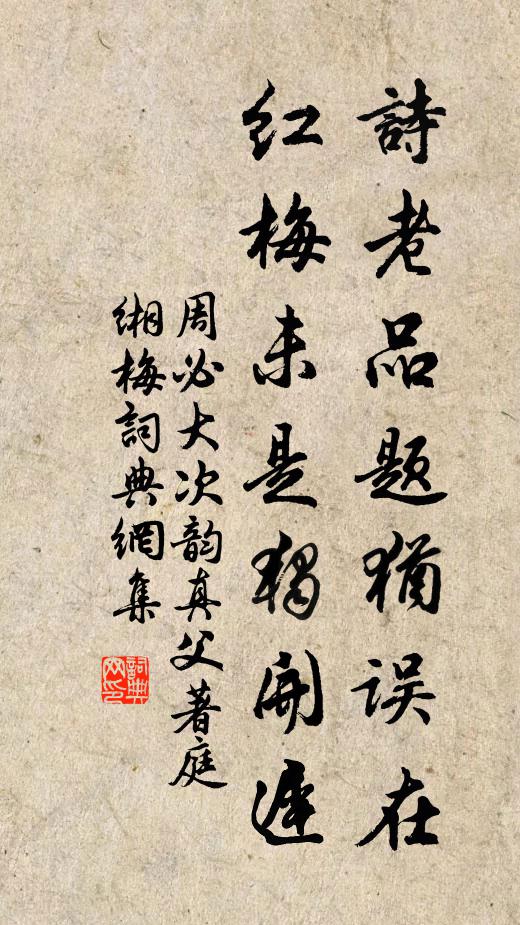 詩老品題猶误在
红梅未是獨開遲
周必大次韵真父著庭
缃梅詞典網集
詞典网印